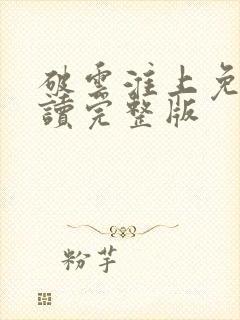 破雲淮上免
讀完整版
粉芋